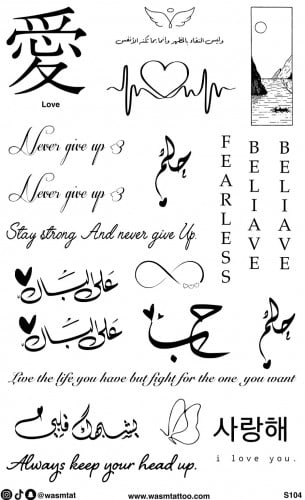 愛
Love
وليس النقاء بالمظهر وانما بما تكنه الأنفس
Never give up
Never give up
حالم
FEARLESS
BELIAVE
BELIAVE
Stay strong And never give Up.
على البال
على البال
حب
حالم
Live the life you have but fight for the one you want
قلبي
사랑해
i love you.
Always keep your head up.
@wasmtat
www.wasmtattoo.com
S104